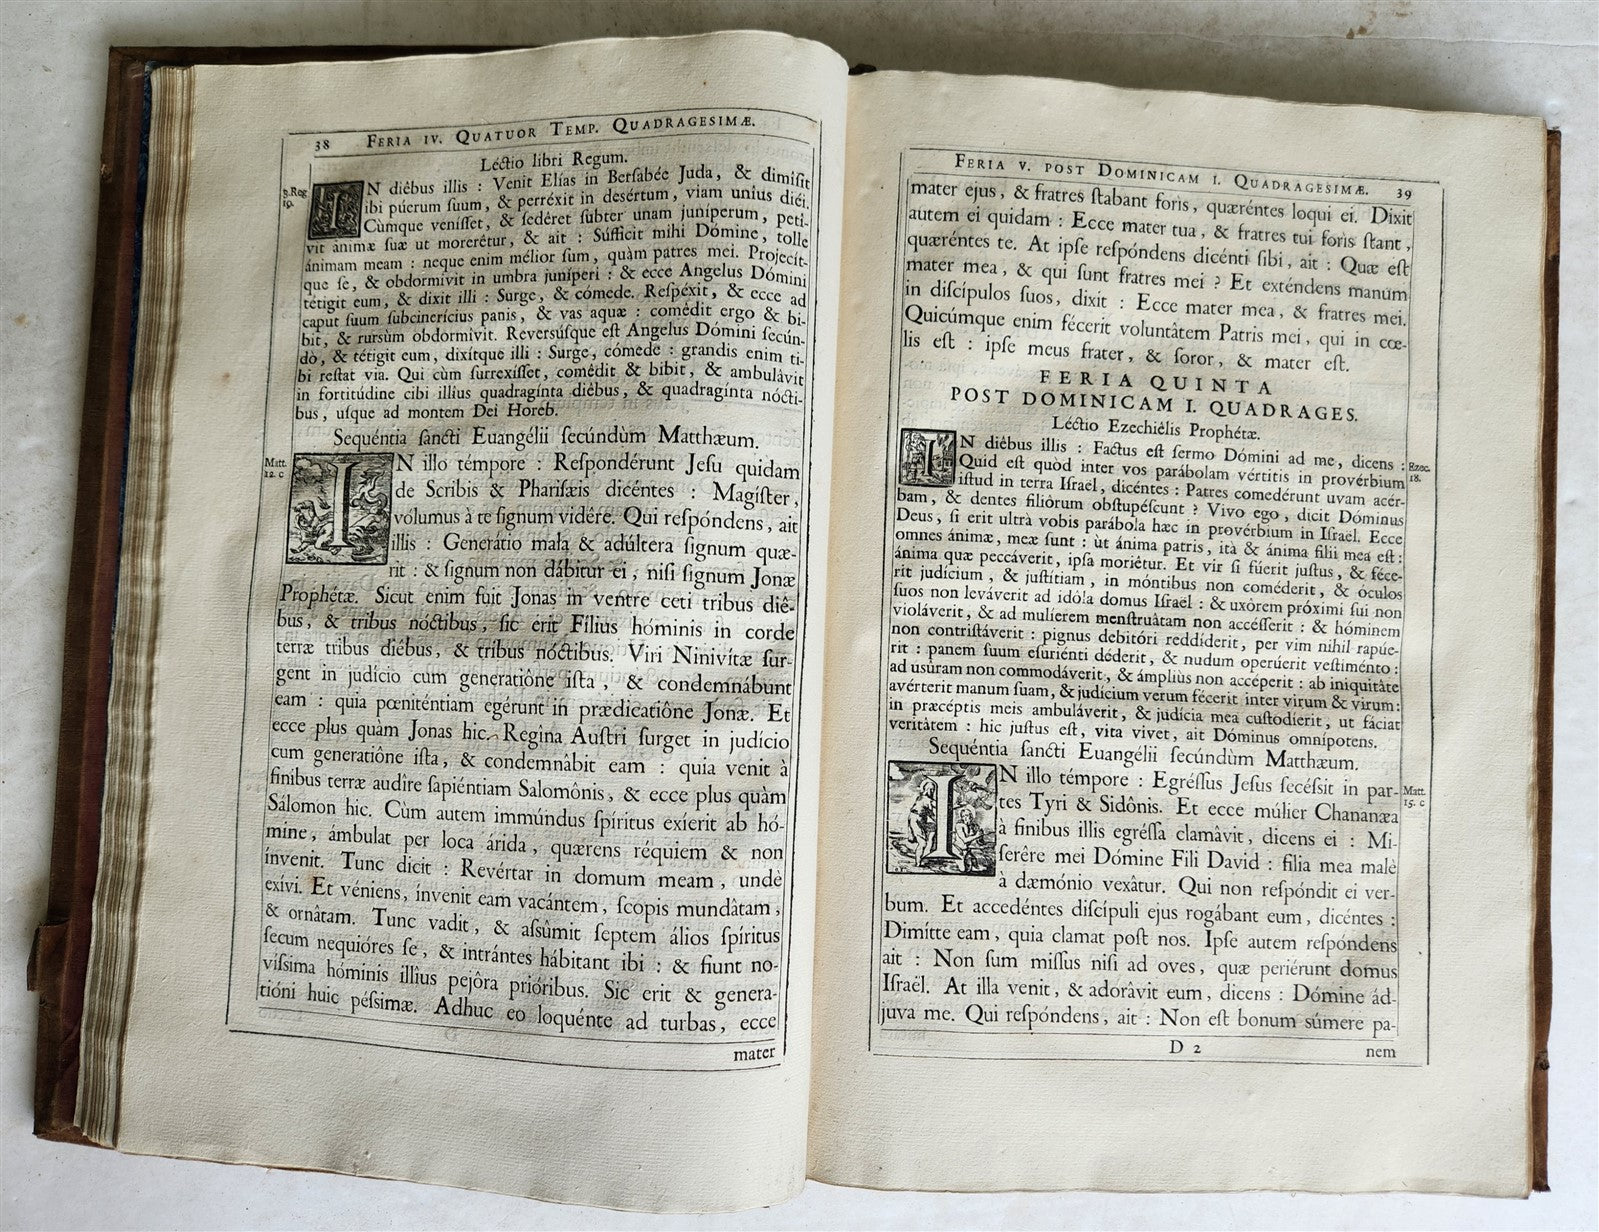 38 FERIA IV. QUATUOR TEMP. QUADRAGESIMÆ.
Léctio libri Regum.
3. Reg. 19.
IN diêbus illis : Venit Elías in Bersabée Juda, & dimîsit
ibi púerum suum, & perréxit in desértum, viam unîus diéi.
Cùmque venísset, & sedêret subter unam juníperum, petí-
vit ánimæ suæ ut morerêtur, & ait : Súfficit mihi Dómine, tolle
ánimam meam : neque enim mélior sum, quàm patres mei. Projecít-
que se, & obdormivit in umbra juníperi : & ecce Angelus Dómini
tétigit eum, & dixit illi : Surge, & cómede. Respéxit, & ecce ad
caput suum subcinerícius panis, & vas aquæ : comêdit ergo & bi-
bit, & rursùm obdormívit. Reversúsque est Angelus Dómini secún-
dò, & tétigit eum, dixítque illi : Surge, cómede : grandis enim ti-
bi restat via. Qui cùm surrexísset, comêdit & bibit, & ambulávit
in fortitúdine cibi illîus quadragínta diêbus, & quadragínta nócti-
bus, usque ad montem Dei Horeb.
Sequéntia sancti Euangélii secúndùm Matthæum.
Matt. 12. c
IN illo témpore : Respondérunt Jesu quidam
de Scribis & Pharisæis dicéntes : Magíster,
vólumus à te signum vidêre. Qui respóndens, ait
illis : Generátio mala & adúltera signum quæ-
rit : & signum non dábitur ei, nisi signum Jonæ
Prophétæ. Sicut enim fuit Jonas in ventre ceti tribus diê-
bus, & tribus nóctibus, sic erit Fílius hóminis in corde
terræ tribus diébus, & tribus nóctibus. Viri Ninivítæ sur-
gent in judício cum generatiône ista, & condemnábunt
eam : quia pœniténtiam egérunt in prædicatiône Jonæ. Et
ecce plus quàm Jonas hic. Regîna Austri surget in judício
cum generatiône ista, & condemnâbit eam : quia venit à
finibus terræ audîre sapiéntiam Salomônis, & ecce plus quàm
Sálomon hic. Cùm autem immúndus spíritus exíerit ab hó-
mine, ámbulat per loca árida, quærens réquiem & non
ínvenit. Tunc dicit : Revértar in domum meam, undè
exívi. Et véniens, ínvenit eam vacántem, scopis mundâtam,
& ornâtam. Tunc vadit, & assûmit septem álios spíritus
secum nequióres se, & intrántes hábitant ibi : & fiunt no-
víssima hóminis illîus pejôra prióribus. Sic erit & genera-
tióni huic péssimæ. Adhuc eo loquénte ad turbas, ecce
mater
FERIA V. POST DOMINICAM I. QUADRAGESIMÆ. 39
mater ejus, & fratres stabant foris, quæréntes loqui ei. Dixit
autem ei quidam : Ecce mater tua, & fratres tui foris stant,
quæréntes te. At ipse respóndens dicénti sibi, ait : Quæ est
mater mea, & qui sunt fratres mei ? Et exténdens manum
in discípulos suos, dixit : Ecce mater mea, & fratres mei.
Quicúmque enim fécerit voluntâtem Patris mei, qui in cœ-
lis est : ipse meus frater, & soror, & mater est.
FERIA QUINTA
POST DOMINICAM I. QUADRAGES.
Léctio Ezechiêlis Prophétæ.
IN diêbus illis : Factus est sermo Dómini ad me, dicens :
Ezec. 18.
Quid est quòd inter vos parábolam vértitis in provérbium
istud in terra Israël, dicéntes : Patres comedérunt uvam acér-
bam, & dentes filiôrum obstupéscunt ? Vivo ego, dicit Dóminus
Deus, si erit ultrà vobis parábola hæc in provérbium in Israel. Ecce
omnes ánimæ, meæ sunt : ùt ánima patris, ità & ánima filii mea est :
ánima quæ peccáverit, ipsa moriétur. Et vir si fúerit justus, & féce-
rit judícium, & justítiam, in móntibus non coméderit, & óculos
suos non leváverit ad idóla domus Israel : & uxórem próximi sui non
violáverit, & ad mulíerem menstruâtam non accésserit : & hóminem
non contristáverit : pignus debitóri reddíderit, per vim nihil rapúe-
rit : panem suum esuriénti déderit, & nudum operúerit vestiménto :
ad usûram non commodáverit, & ámplius non accéperit : ab iniquitâte
avérterit manum suam, & judícium verum fécerit inter virum & virum :
in præcéptis meis ambuláverit, & judícia mea custodíerit, ut fáciat
veritâtem : hic justus est, vita vivet, ait Dóminus omnípotens.
Sequéntia sancti Euangélii secúndùm Matthæum.
IN illo témpore : Egréssus Jesus secéssit in par-
Matt. 15. c
tes Tyri & Sidônis. Et ecce múlier Chananæa
à finibus illis egréssa clamâvit, dicens ei : Mi-
serêre mei Dómine Fili David : filia mea malè
à dæmónio vexâtur. Qui non respóndit ei ver-
bum. Et accedéntes discípuli ejus rogábant eum, dicéntes :
Dimítte eam, quia clamat post nos. Ipse autem respóndens
ait : Non sum missus nisi ad oves, quæ periérunt domus
Israël. At illa venit, & adorâvit eum, dicens : Dómine ád-
juva me. Qui respóndens, ait : Non est bonum súmere pa-
D 2
nem